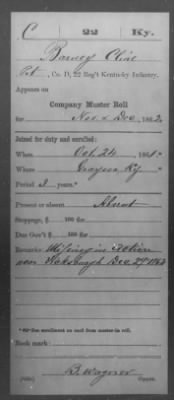 C 22 Ky.
Barney Cline
Pvt., Co. D, 22 Reg't Kentucky Infantry.
Appears on
Company Muster Roll
for Nov. & Dec., 1862.
Joined for duty and enrolled:
When Oct. 24, 1861.
Where Grayson Ky
Period 3 years.*
Present or absent Absent
Stoppage, $ 100 for
Due Gov't $ 100 for
Remarks: Missing in Action
near Vicksburgh Dec 29 1862
*See enrollment on card from muster-in roll.
Book mark:
B. Wagner
Copyist.